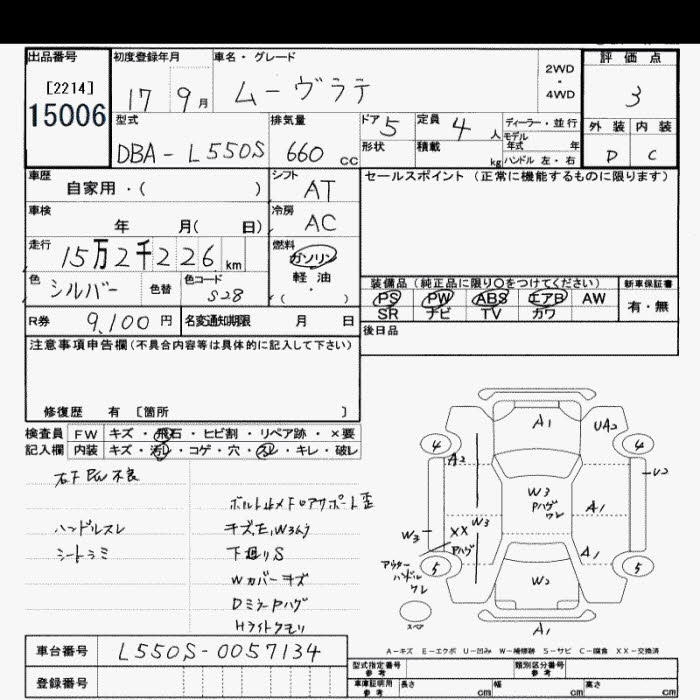 出品番号
[2214]
15006
初度登録年月
17 9月
車名・グレード
ムーヴラテ
2WD
・
4WD
評価点
3
外装 内装
D C
型式
DBA-L550S
排気量
660 cc
ドア 5
形状
定員 4 人
積載 kg
ディーラー・並行
モデル
年式 年
ハンドル 左・右
車歴
自家用・( )
シフト
AT
車検
年 月( 日)
冷房
AC
走行
15万2千226 km
燃料
ガソリン
軽油
・
( )
色
シルバー
色替
色コード
S28
R券 9,100円
名変通知期限 月 日
セールスポイント(正常に機能するものに限ります)
装備品(純正品に限り○をつけてください)
PS PW ABS エアB AW
SR ナビ TV カワ
新車保証書
有・無
後日品
注意事項申告欄(不具合内容等は具体的に記入して下さい)
修復歴 有 [箇所 ]
検査員
記入欄
FW キズ・飛石・ヒビ割・リペア跡・×要
内装 キズ・汚レ・コゲ・穴・スレ・キレ・破レ
右下PW不良
ハンドルスレ
シートシミ
キズE,W
下廻りS
Wカバーキズ
DミラーPハゲ
Hライトクモリ
A1
UA2
4
4
A2
U2
W3
Pハゲ
ワレ
A1
W3
XX
W3
Pハゲ
A1
アウター
ハンドル
ワレ
5
5
W2
スペア
A1
A-キズ E-エクボ U-凹み W-補修跡 S-サビ C-腐食 XX-交換済
車台番号
L550S-0057134
登録番号
型式指定番号
参考
類別区分番号
参考
車庫証明用
参考
長さ cm
幅 cm
高さ cm